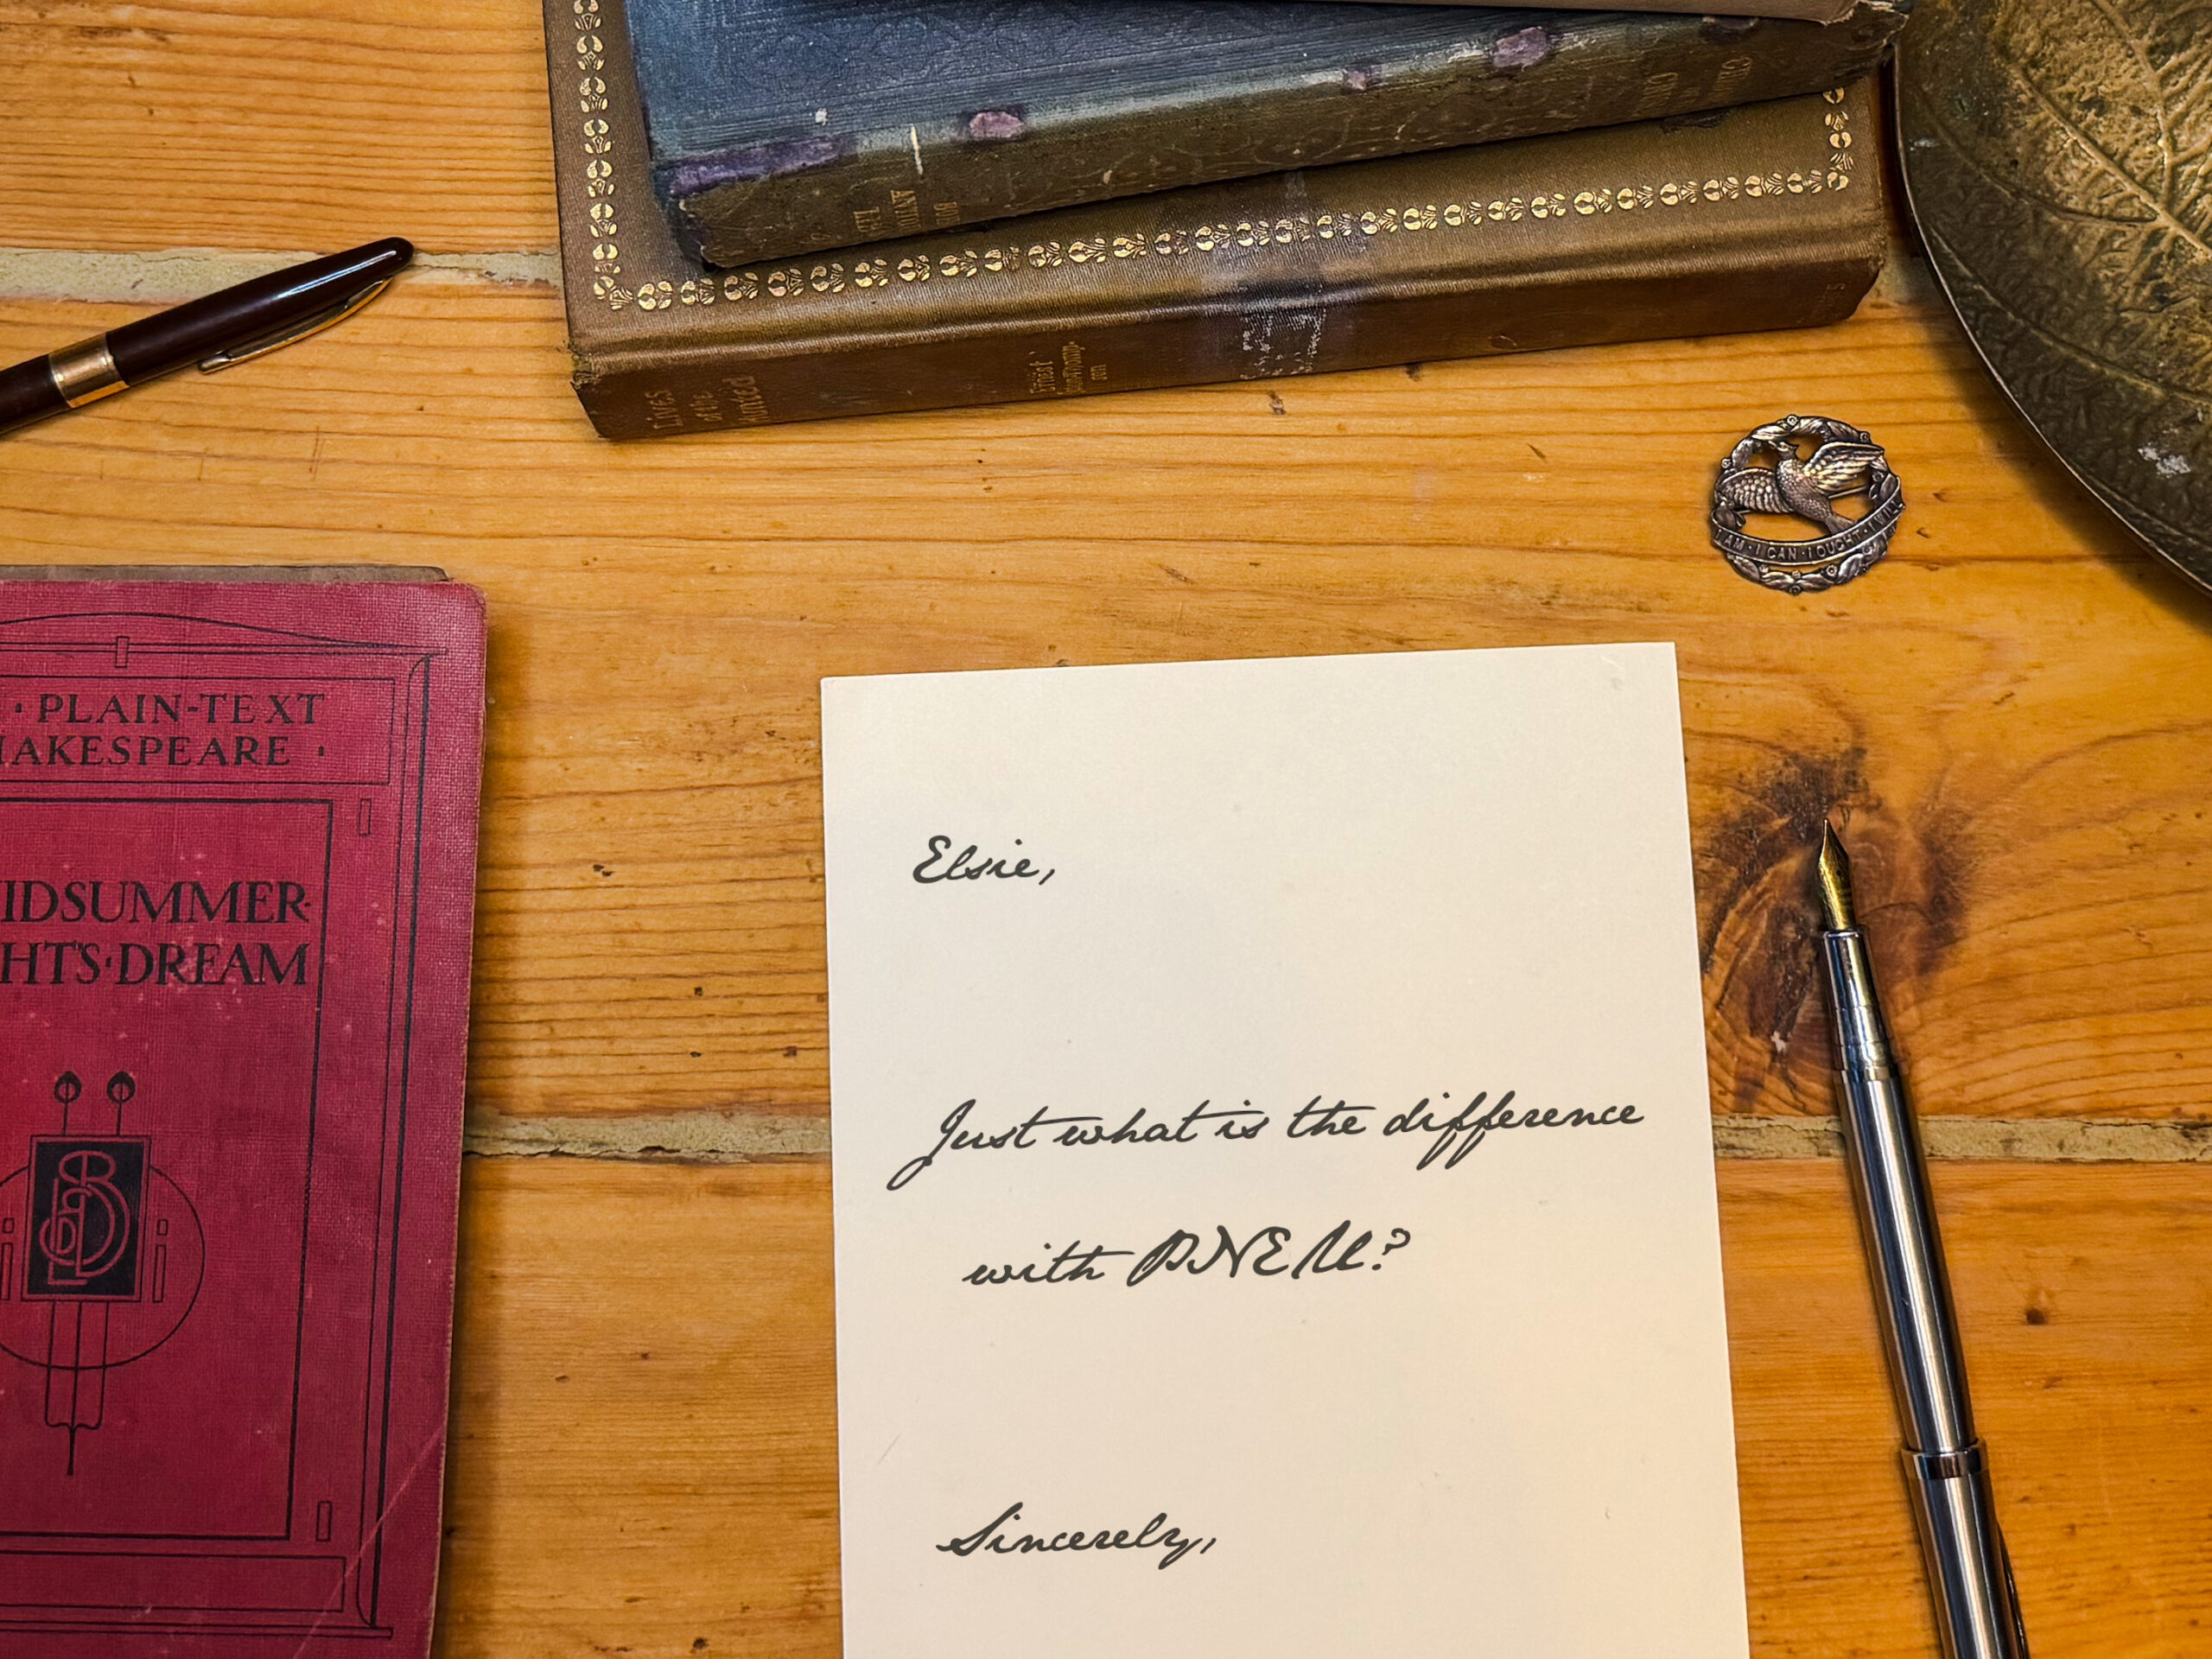 Lives
of the
Hunted
I AM · I CAN · I OUGHT · I WILL
· PLAIN-TEXT
HAKESPEARE ·
IDSUMMER·
HT'S·DREAM
Elsie,
Just what is the difference
with PNEU?
Sincerely,